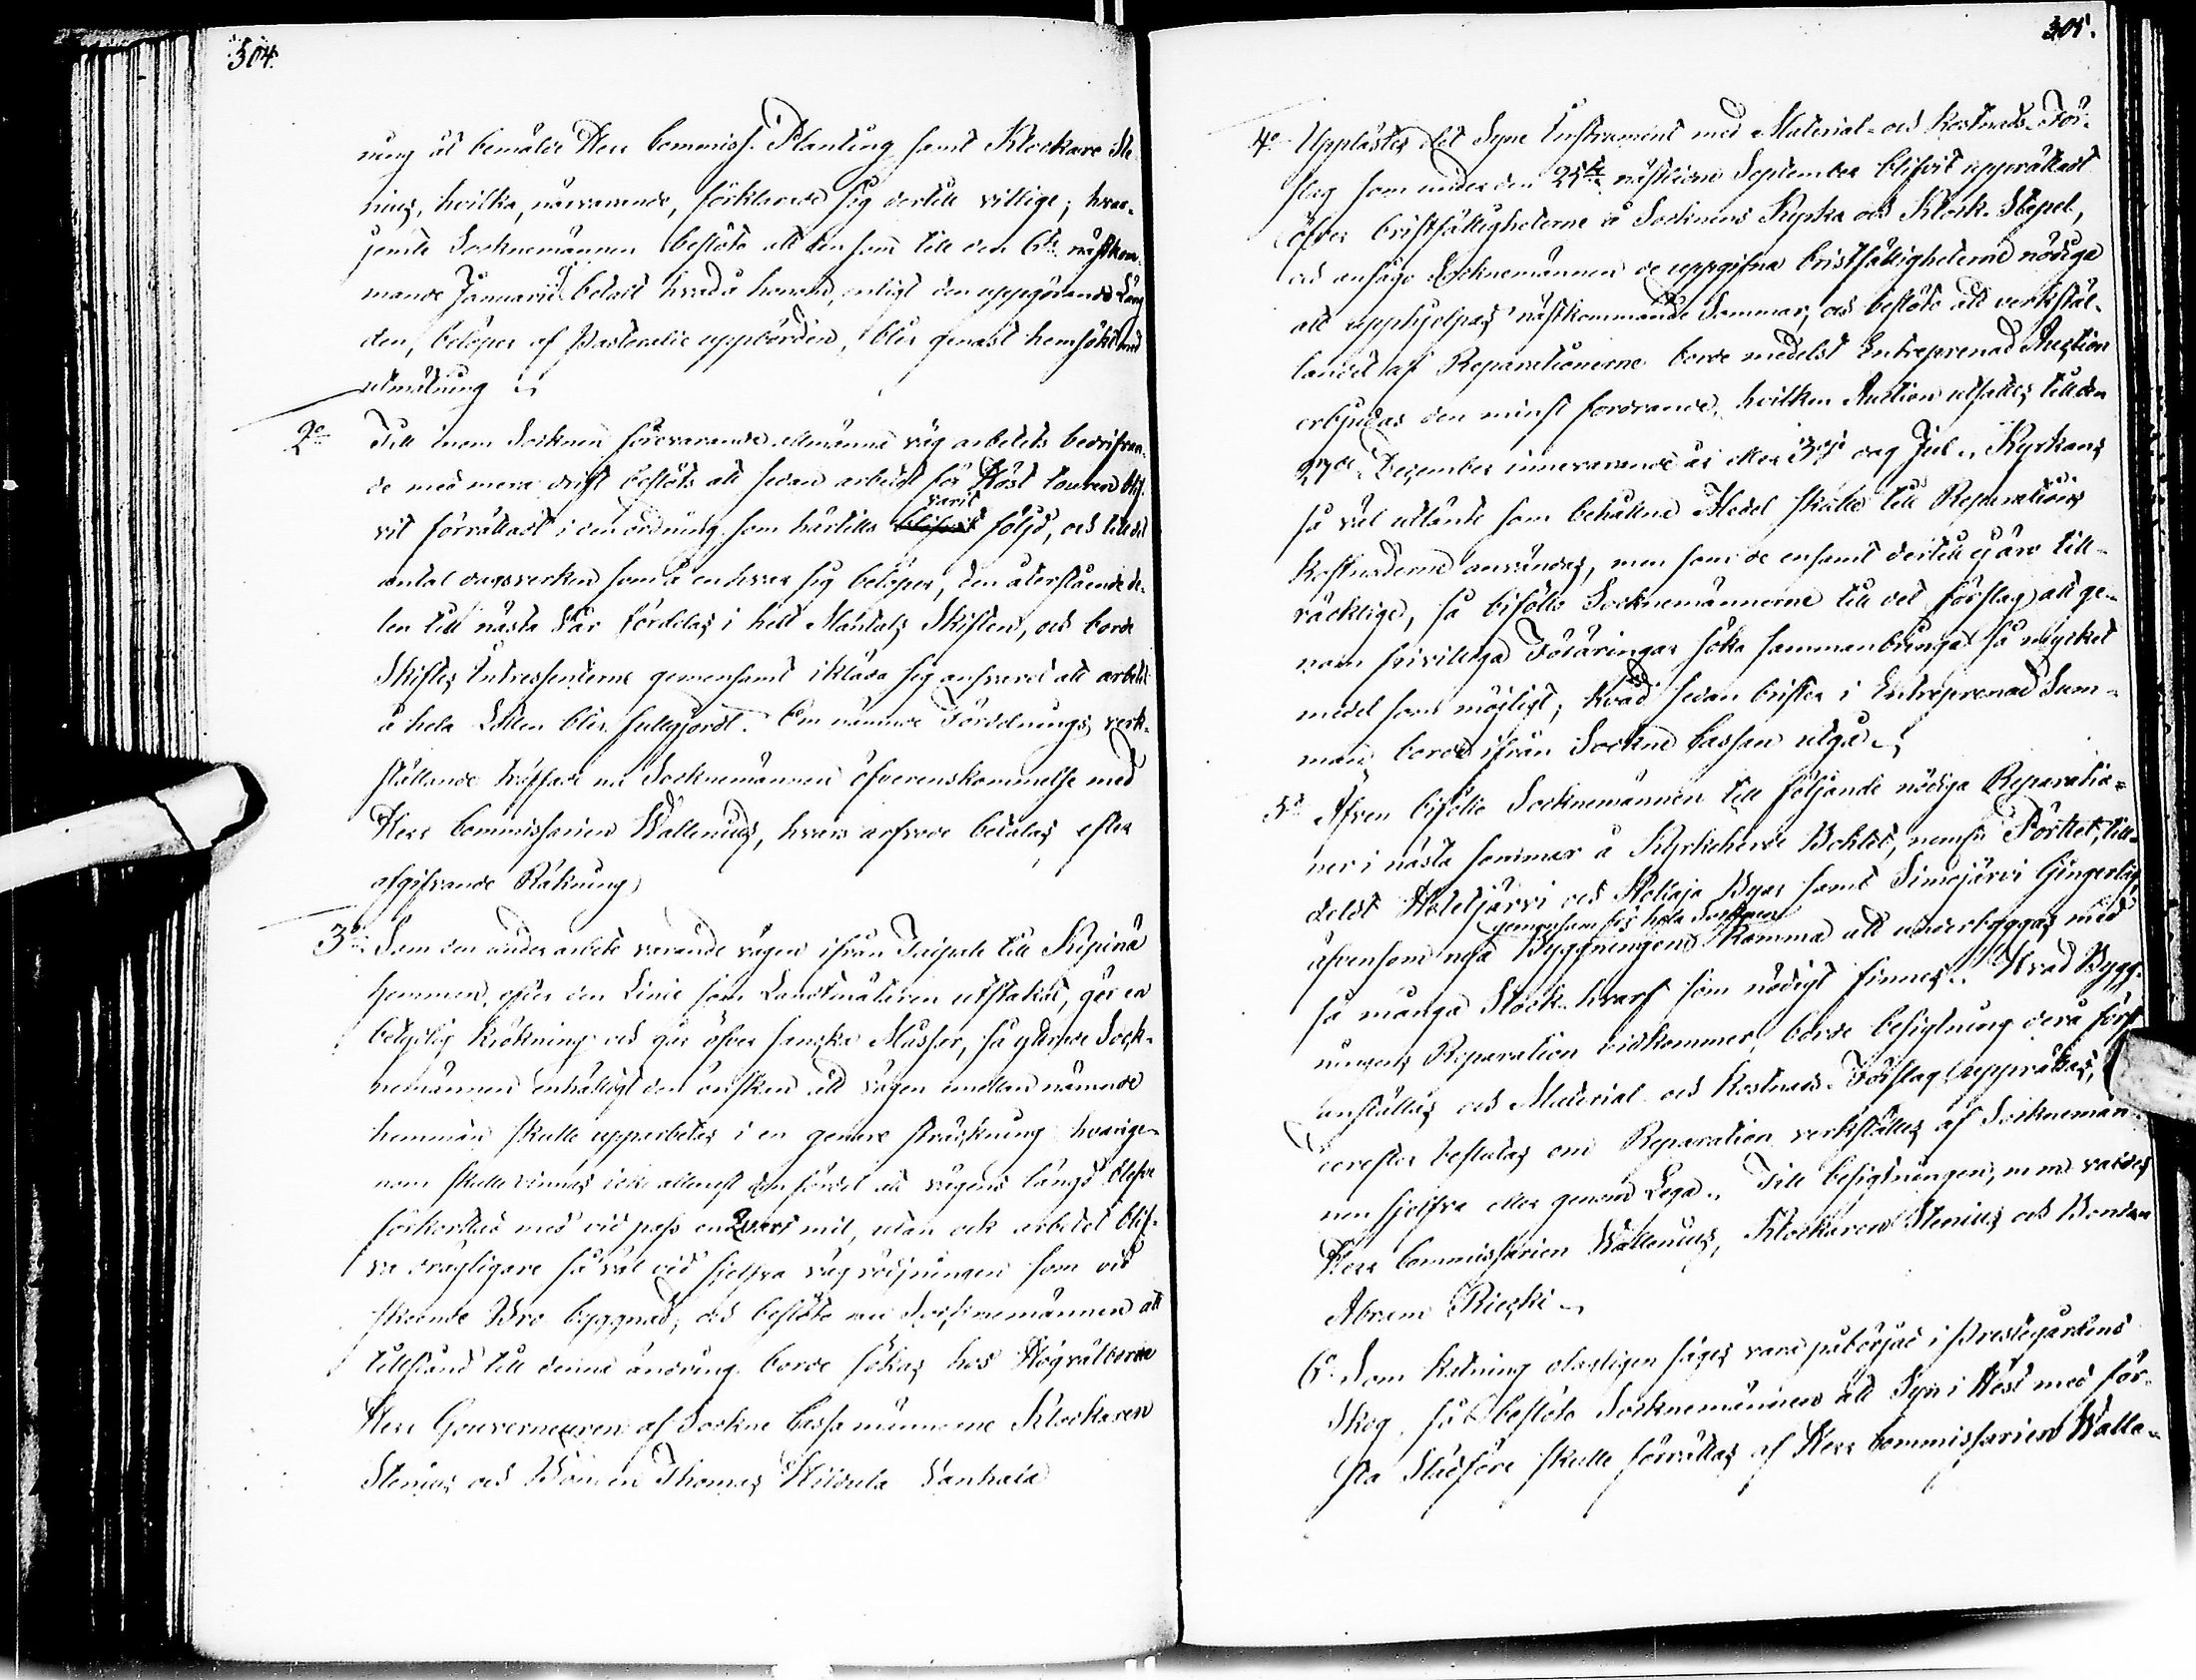 304.
ning åt bemälde Herr Commiss. Planting samt Klockare Ste-
nius, hvilka, närvarande, förklarade sig dertill villige; hvar-
jemte Socknemännen beslöto att den som till den 6te nästkom-
mande Januarii betalt hvad å honom, enligt den uppgörande Läng
den, belöper af Pastoralie uppbörden, blir genast hemsökt med
utmätning
2o Till inom Socknen förevarande allmänna väg arbetets bedrifvan-
de med mera drift beslöts att sedan arbetet för Höst touren blif-
vit förrättadt i den ordning som härtills varit följd, och till det
antal dagsverken som å en hvar sig belöper, den återstående de-
len till nästa Vår fördelas i helt Mantals Skiften, och borde
Skiftes Intressenterne gemensamt ikläda sig ansvaret att arbetet
å hela Lotten blir fullgjordt. Om nämnde Fördelnings verk-
ställande träffade nu Socknemännen öfverenskommelse med
Herr Commissarien Wallenius, hvars arfvode betalas efter
afgifvande Räkning
3o Som den under arbete varande vägen ifrån Taipale till Kepinä
hemman, efter den Linie som Landtmäteren utstakat, gör en
betydlig krökning och går öfver sanka Mossar, så yttrade Sock-
nemännen enhälligt den önskan att vägen emellan nämnde
hemman skulle upparbetas i en genare sträckning hvarige-
nom skulle vinnas icke allenast den fördel att vägens längd blefve
förkortad med vid pass en qvart mil, utan ock arbetet blif-
va drägligare så väl vid sjelfva vägrödjningen som vid
skeende Bro byggnad, och beslöto nu Socknemännen att
tillstånd till denna ändring borde sökas hos Högvälborne
Herr Gouverneuren af Sockne Cassa männerne Klockaren
Stenius och Bonden Thomas Hildula Vanhala
305.
4o Upplästes det Syne Instrument med Material- och Kostnads-För-
slag som under den 25te nästledne September blifvit upprättadt
öfver bristfälligheterne å Socknens Kyrka och Klock-Stapel,
och ansågo Socknemännen de uppgifna bristfälligheterne nödiga
att upphjelpas nästkommande Sommar, och beslöto att verkstäl-
landet af Reparationerne borde medelst Entreprenad Auction
erbjudas den minst fordrande, hvilken Auction utsattes till den
27de December innevarande år eller 3dje dag Jul. Kyrkans
så väl utlånte som behållne Medel skulle till Reparations
kostnaderne användas, men som de ensamt dertill ej äro till-
räcklige, så biföllo Socknemännerne till det förslag att ge-
nom frivilliga Föräringar söka sammanbringa så mycket
medel som möjligt; hvad sedan brister i Entreprenad Sum-
man borde ifrån Sockne Cassan utgå.
5o Äfven biföllo Socknemännen till följande nödiga Reparatio-
ner i nästa sommar å Kyrkoherde Bohlet, nemln Förket, till-
deldt och Byar samt Simojärvi
gemensam för hela Socknen
äfvensom nya Byggningens Kamma att underbyggas med
så många Stock-hvarf som nödigt finnes. Hvad Bygg-
ningens Reparation vidkommer, borde besigtning derå först
anställas och Material och Kostnads-Förslag upprättas,
derefter beslutas om Reparation verkställes af Socknemän-
nen sjelfva eller genom Lega. Till besigtningen, m m valdes
Herr Commissarien Wallenius, Klockaren Stenius och Bonden
Abram Riecki
6o Som hetning olagligen säges vara påbörjad i Prestegårdens
Skog, så beslöto Socknemännen att Syn i Höst med för-
sta Slädföre skulle förrättas af Herr Commissarien Walle-